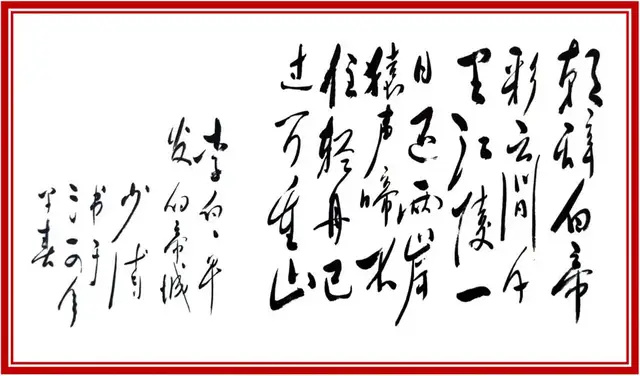 朝辞白帝
彩云间千
里江陵一
日还两岸
猿声啼不
住轻舟已
过万重山
李白、早
发白帝城
书于
早春